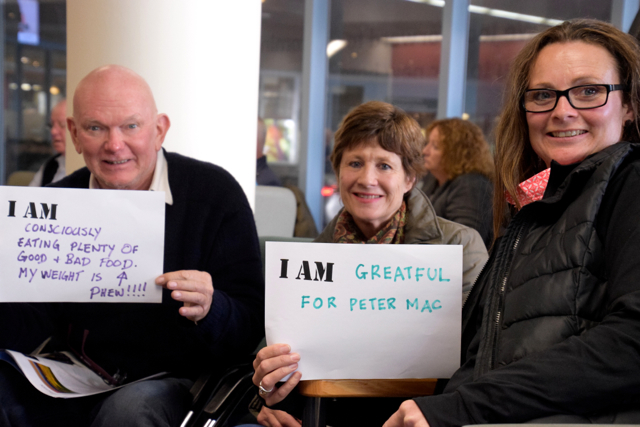 I AM
CONSCIOUSLY
EATING PLENTY OF
GOOD + BAD FOOD.
MY WEIGHT IS ↑
PHEW!!!!
I AM GREATFUL
FOR PETER MAC